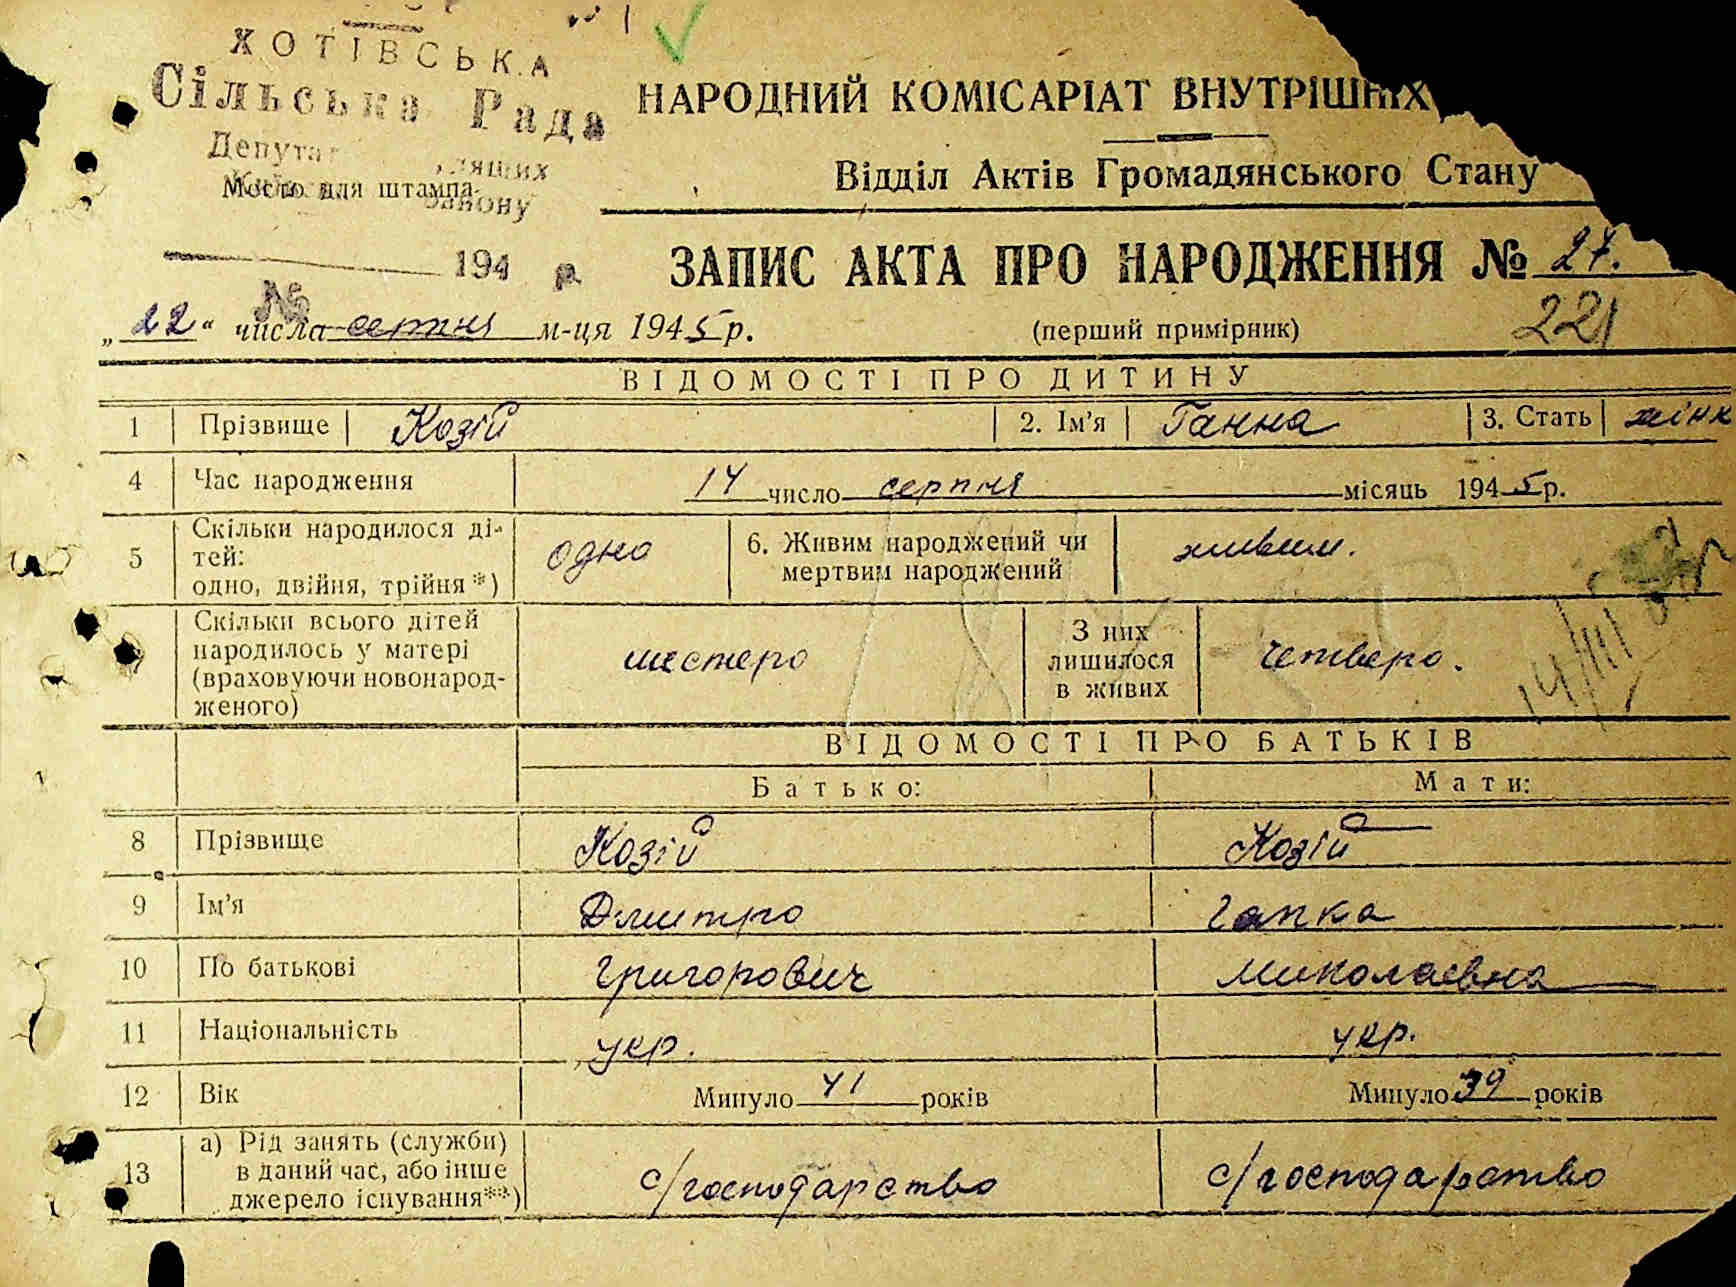 ХОТІВСЬКА
Сільська Рада
НАРОДНИЙ КОМІСАРІАТ ВНУТРІШНІХ
Відділ Актів Громадянського Стану
Місце для штампа
194 р.
ЗАПИС АКТА ПРО НАРОДЖЕННЯ № 27.
№
„22“ числа серпня м-ця 1945 р.
(перший примірник)
221
ВІДОМОСТІ ПРО ДИТИНУ
1 Прізвище Козій 2. Ім'я Ганна 3. Стать жінк
4 Час народження 14 число серпня місяць 1945 р.
5 Скільки народилося ді-
тей:
одно, двійня, трійня*) одно 6. Живим народжений чи
мертвим народжений живим.
7 Скільки всього дітей
народилось у матері
(враховуючи новонарод-
женого) шестеро З них
лишилося
в живих четверо.
14/III
ВІДОМОСТІ ПРО БАТЬКІВ
Батько: Мати:
8 Прізвище Козій Козій
9 Ім'я Дмитро Гапка
10 По батькові Григорович Миколаєвна
11 Національність укр. укр.
12 Вік Минуло 41 років Минуло 39 років
13 а) Рід занять (служби)
в даний час, або інше
джерело існування**) с/господарство с/господарство